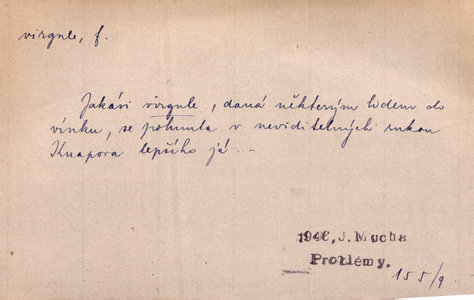 virgule, f.
Jakási virgule, daná některým lidem do
vínku, se pohnula v neviditelných rukou
lepšího já ...
1948, J. Mucha
Problémy.
155/9